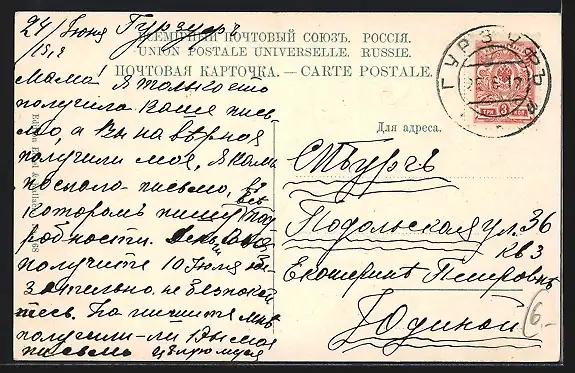 24/ Июня Гурзуфъ
1912
ВСЕМІРНЫЙ ПОЧТОВЫЙ СОЮЗЪ. РОССІЯ.
UNION POSTALE UNIVERSELLE. RUSSIE.
ПОЧТОВАЯ КАРТОЧКА. — CARTE POSTALE.
Мама! Я только что
получила Ваше пись-
мо, а Вы на вѣрное
получили мое, я Вамъ
послала письмо, въ
которомъ пишу все под
робности. Деньги Соня
получите 10 Июля
обязательно, не безпокой
тесь. Напишите мнѣ
получили-ли Вы мое
письмо цѣлую
ГУРЗУФЪ
ТРИ 3 КОП
Для адреса.
СПБургъ
Подольская ул. 36
кв 3
Екатеринѣ Петровнѣ
Юдиной
6.-